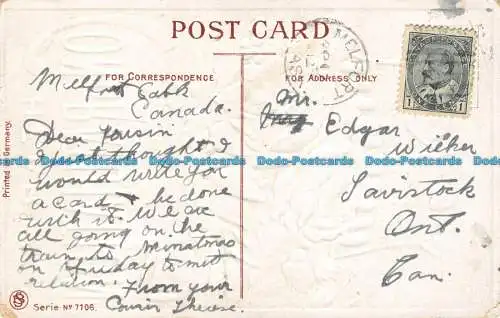 POST CARD
FOR CORRESPONDENCE
FOR ADDRESS ONLY
Canada.
Dear Cousin
I just thought I
would write for
a card & be done
with it. We are
all going on the
train to
on Friday to met
relation. From your
Cousin Therese.
Mr.
Edgar
Wicker
Tavistock
Ont.
Can.
MELFORT
SASK
1 1
Printed in Germany.
Serie Nº 7106.
Dodo-Postcards Dodo-Postcards Dodo-Postcards Dodo-Postcards Dodo-Postcards